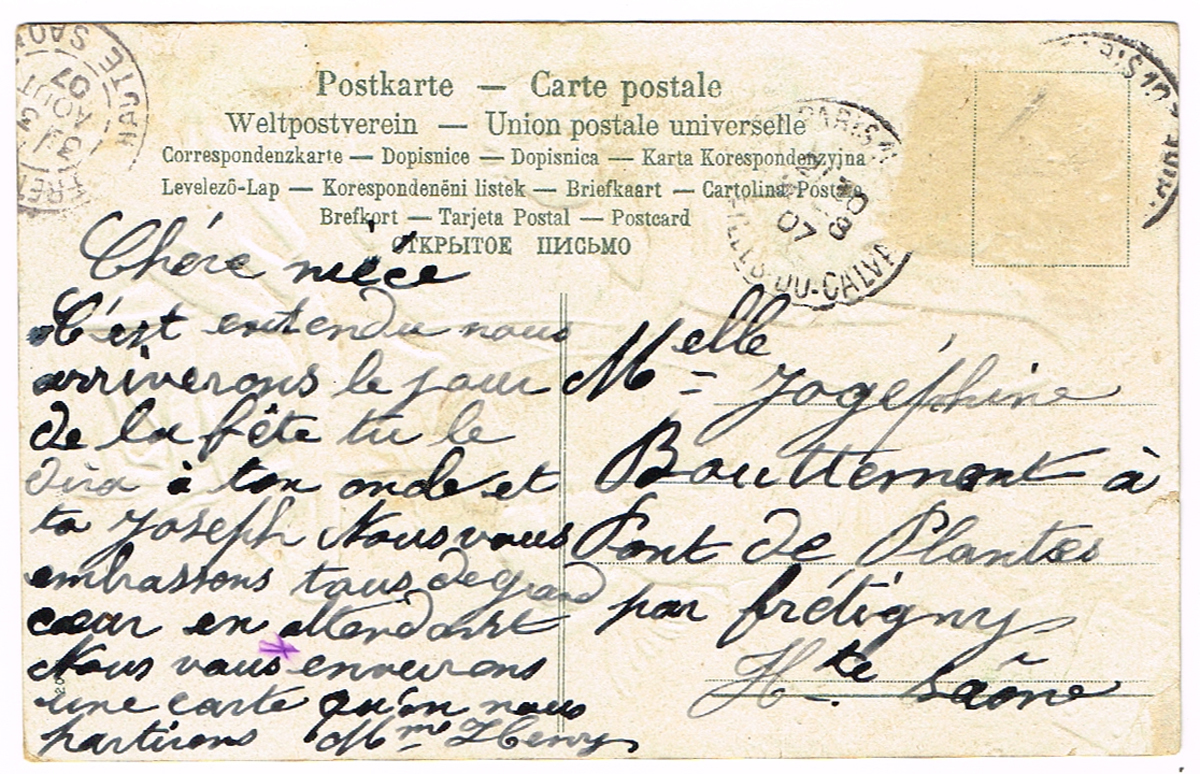 Postkarte — Carte postale
Weltpostverein — Union postale universelle
Correspondenzkarte — Dopisnice — Dopisnica — Karta Korespondenzyjna
Levelezö-Lap — Korespondenĕni listek — Briefkaart — Cartolina Postale
Brefkort — Tarjeta Postal — Postcard
ОТКРЫТОЕ ПИСЬМО
HAUTE SAO
31
AOUT
07
PARIS
30
8
07
DU-CALVA
Chére niéce
C'est entendu nous
arriverons le jour
de la fête tu le
dira à ton oncle et
ta Joseph Nous vous
embrassons tous de grand
cœur en attendant
Nous vous enverrons
une carte qu'on nous
partirons Mme Henry
Melle Joséphine
Bouttement à
Pont de Plantes
par frétigny
Hte Saône